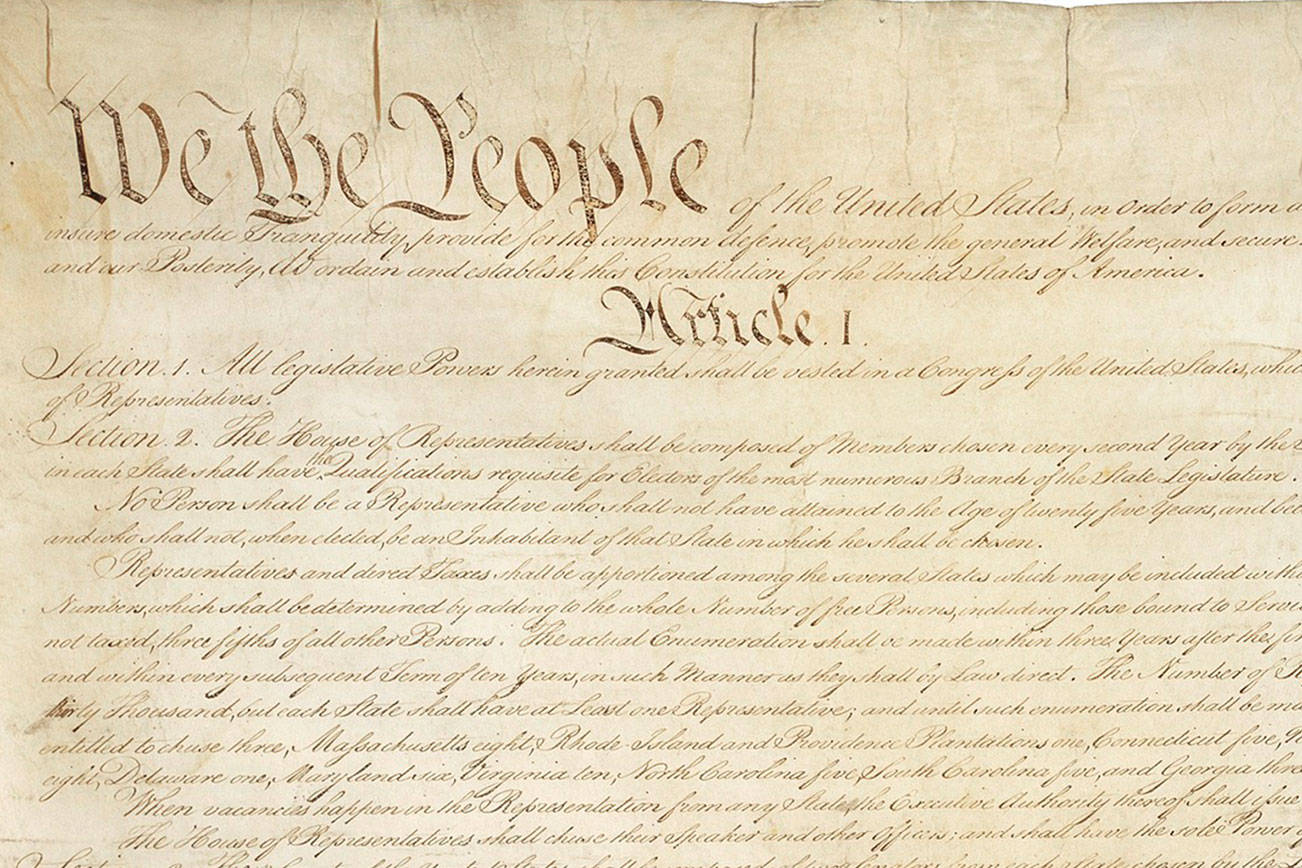 We the People of the United States, in Order to form a
insure domestic Tranquility, provide for the common defence, promote the general Welfare, and secure
and our Posterity, do ordain and establish this Constitution for the United States of America.
Article. I.
Section. 1. All legislative Powers herein granted shall be vested in a Congress of the United States, which
of Representatives.
Section. 2. The House of Representatives shall be composed of Members chosen every second Year by the
in each State shall have the Qualifications requisite for Electors of the most numerous Branch of the State Legislature.
No Person shall be a Representative who shall not have attained to the Age of twenty five Years, and bee
and who shall not, when elected, be an Inhabitant of that State in which he shall be chosen.
Representatives and direct Taxes shall be apportioned among the several States which may be included with
Numbers, which shall be determined by adding to the whole Number of free Persons, including those bound to Servi
not taxed, three fifths of all other Persons. The actual Enumeration shall be made within three Years after the fir
and within every subsequent Term of ten Years, in such Manner as they shall by Law direct. The Number of
thirty Thousand, but each State shall have at Least one Representative; and until such enumeration shall be ma
entitled to chuse three, Massachusetts eight, Rhode-Island and Providence Plantations one, Connecticut five,
eight, Delaware one, Maryland six, Virginia ten, North Carolina five, South Carolina five, and Georgia three
When vacancies happen in the Representation from any State, the Executive Authority thereof shall issue
The House of Representatives shall chuse their Speaker and other Officers; and shall have the sole Power